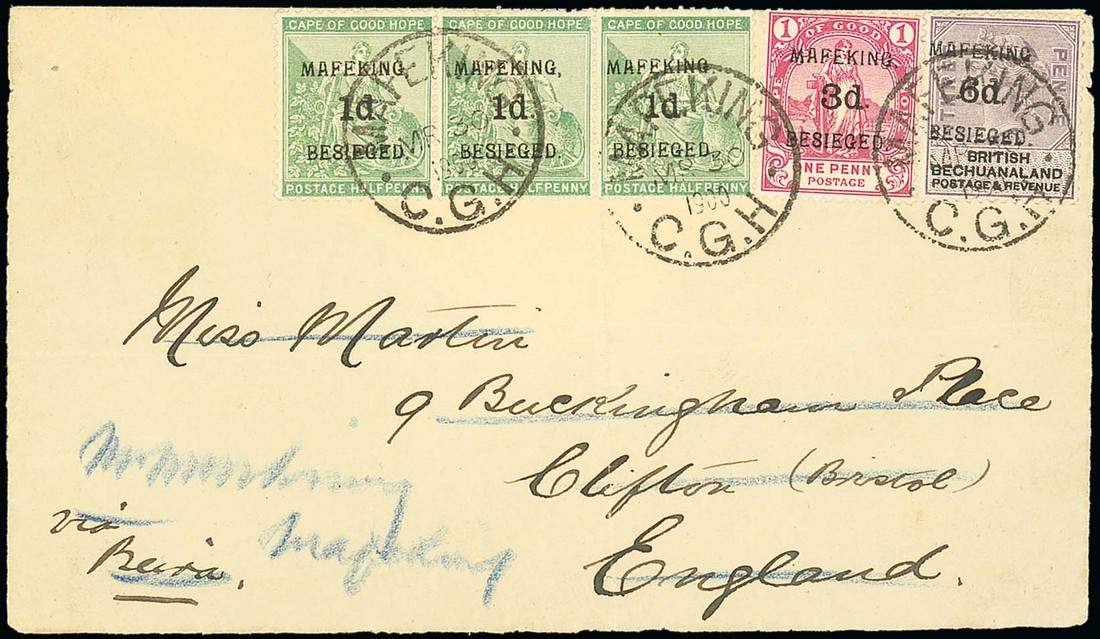 CAPE OF GOOD HOPE
MAFEKING,
1d.
BESIEGED.
POSTAGE HALFPENNY
CAPE OF GOOD HOPE
MAFEKING,
1d.
BESIEGED.
POSTAGE HALFPENNY
CAPE OF GOOD HOPE
MAFEKING
1d.
BESIEGED.
POSTAGE HALFPENNY
1 OF GOOD 1
MAFEKING
3d.
BESIEGED.
ONE PENNY
POSTAGE
PENCE
MAFEKING
6d.
BESIEGED.
BRITISH
BECHUANALAND
POSTAGE & REVENUE
MAFEKING
MR 30
1900
C.G.H
MAFEKING
MR 30
1900
C.G.H
MAFEKING
C.G.H
Miss Martin
9 Buckingham Place
Clifton (Bristol)
England.
via
Beira.
Mafeking